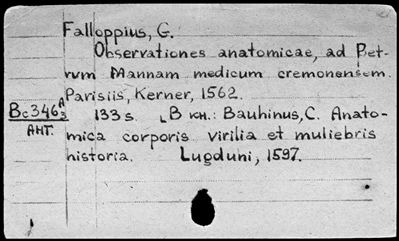 Falloppius, G.
Observationes anatomicae, ad Pet-
rum Mannam medicum cremonensem.
Parisiis, Kerner, 1562.
Вс346 А/3 133 s. [В кн.: Bauhinus, C. Anato-
АНТ. mica corporis virilia et muliebris
historia. Lugduni, 1597.